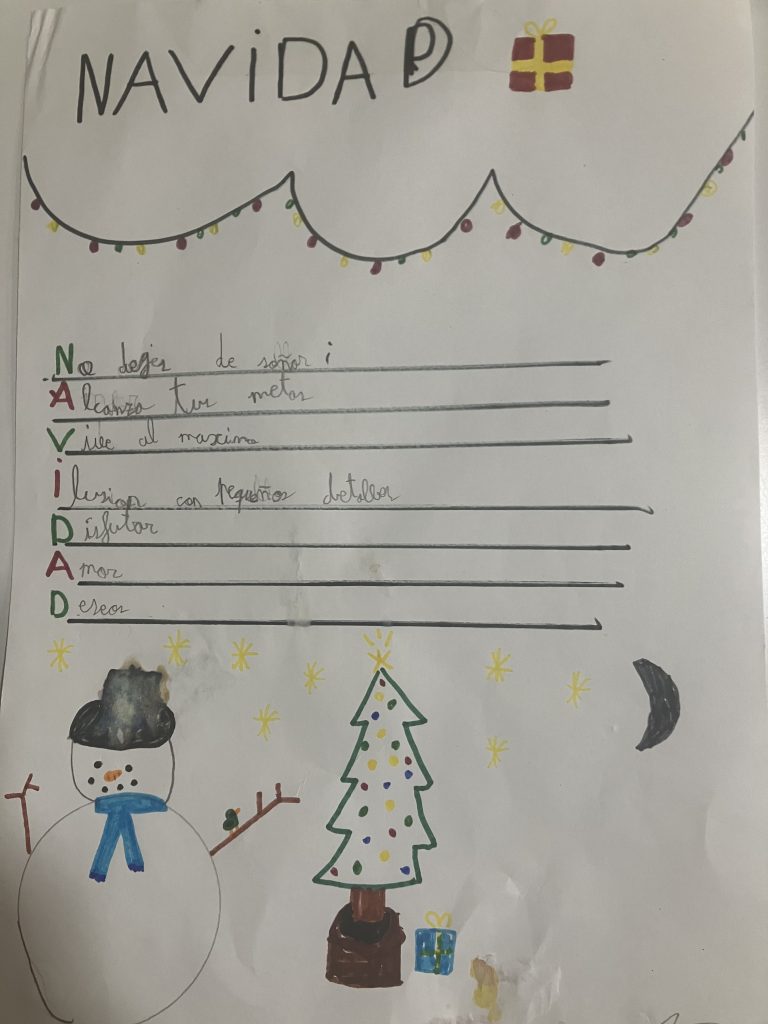 NAViDAD
No dejes de soñar ¡
Alcanza tus metas
Vive al maximo
ilusion con pequeños detalles
Disfutar
Amor
Deseos